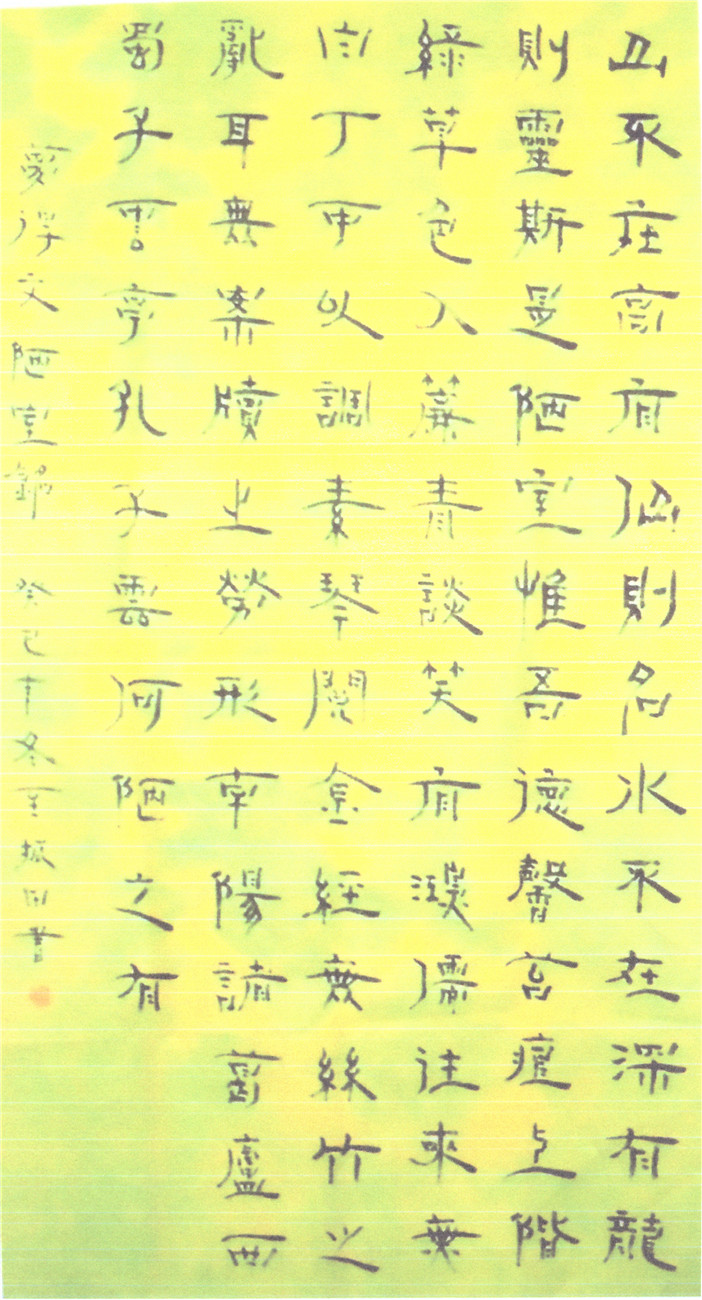 山不在高有仙則名水不在深有龍
則靈斯是陋室惟吾德馨苔痕上階
綠草色入簾青談笑有鴻儒往來無
白丁可以調素琴閱金經無絲竹之
亂耳無案牘之勞形南陽諸葛廬西
蜀子雲亭孔子雲何陋之有
夢得文陋室銘 癸巳年冬至振書